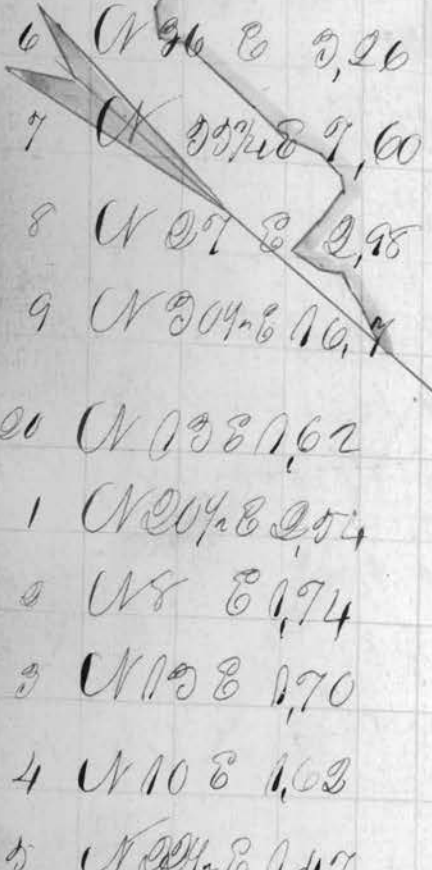 6 N 36 E 3,26
7 N 33½ E 7,60
8 N 27 E 2,98
9 N 30½ E 16,7
20 N 13 E 1,62
1 N 20½ E 2,54
2 N 8 E 1,74
3 N 13 E 1,70
4 N 10 E 1,62
5 N 22½ E 1,47